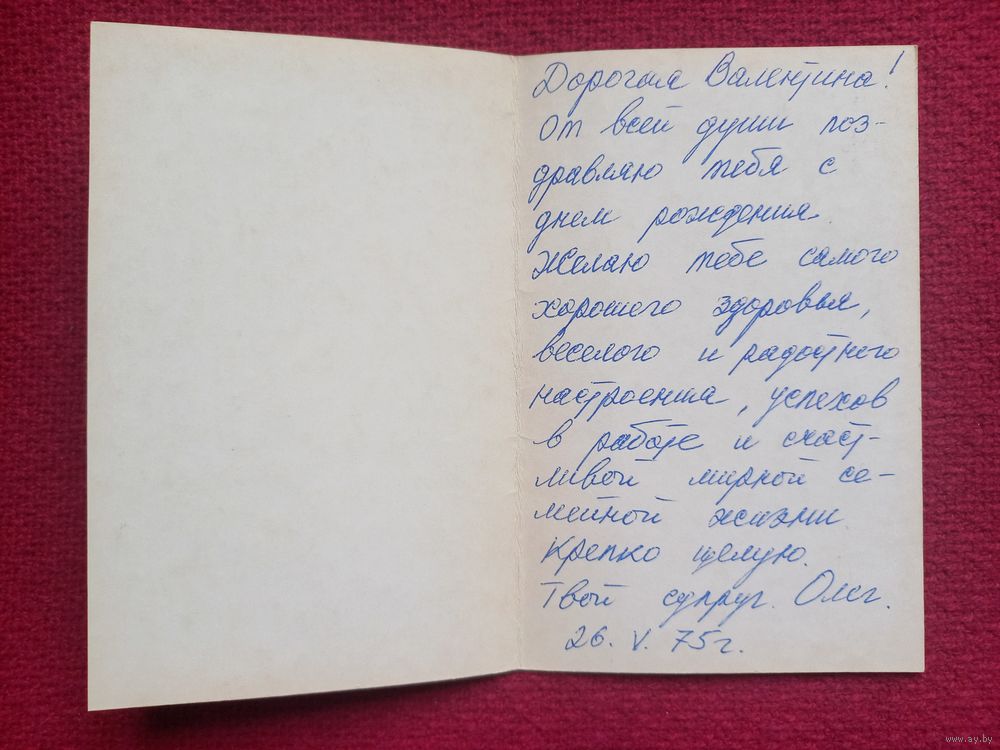 Дорогая Валентина!
От всей души поз-
дравляю тебя с
днем рождения.
Желаю тебе самого
хорошего здоровья,
веселого и радостного
настроения, успехов
в работе и счаст-
ливой мирной се-
мейной жизни.
Крепко целую.
Твой супруг. Олег.
26. V. 75г.
www.ay.by